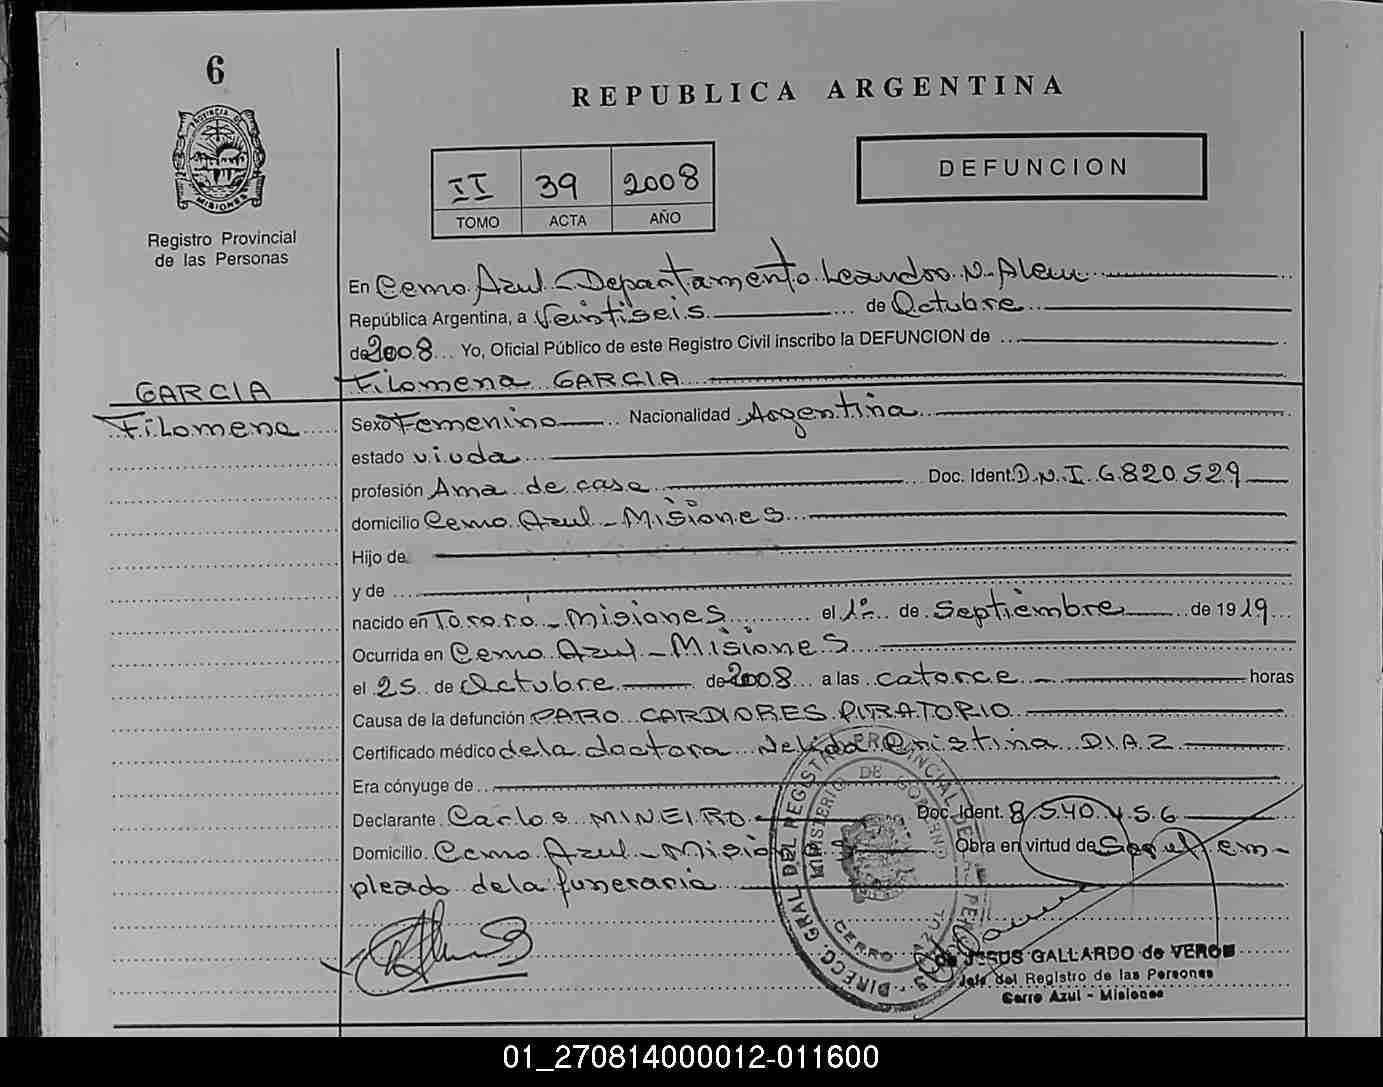 6
REPUBLICA ARGENTINA
PROVINCIA DE
MISIONES
Registro Provincial
de las Personas
II 39 2008
TOMO ACTA AÑO
DEFUNCION
En Cerro Azul - Departamento Leandro N. Alem
República Argentina, a Veintiseis de Octubre
de 2008 Yo, Oficial Público de este Registro Civil inscribo la DEFUNCION de
GARCIA Filomena GARCIA
Filomena Sexo Femenino Nacionalidad Argentina
estado viuda
profesión Ama de casa Doc. Ident. D.N.I 6.820.529
domicilio Cerro Azul - Misiones
Hijo de
y de
nacido en Tororó - Misiones el 1º de Septiembre de 1919
Ocurrida en Cerro Azul - Misiones
el 25 de Octubre de 2008 a las catorce horas
Causa de la defunción PARO CARDIORESPIRATORIO
Certificado médico de la doctora Nelida Cristina DIAZ
Era cónyuge de
Declarante Carlos MINEIRO Doc. Ident. 8.540.456
Domicilio Cerro Azul - Misiones Obra en virtud de Ser el em-
pleado de la funeraria
DIRECC. GRAL DEL REGISTRO PROVINCIAL DE LAS PERSONAS
MINISTERIO DE GOBIERNO
CERRO AZUL
de JESUS GALLARDO de VERON
Jefe del Registro de las Personas
Cerro Azul - Misiones
01_270814000012-011600